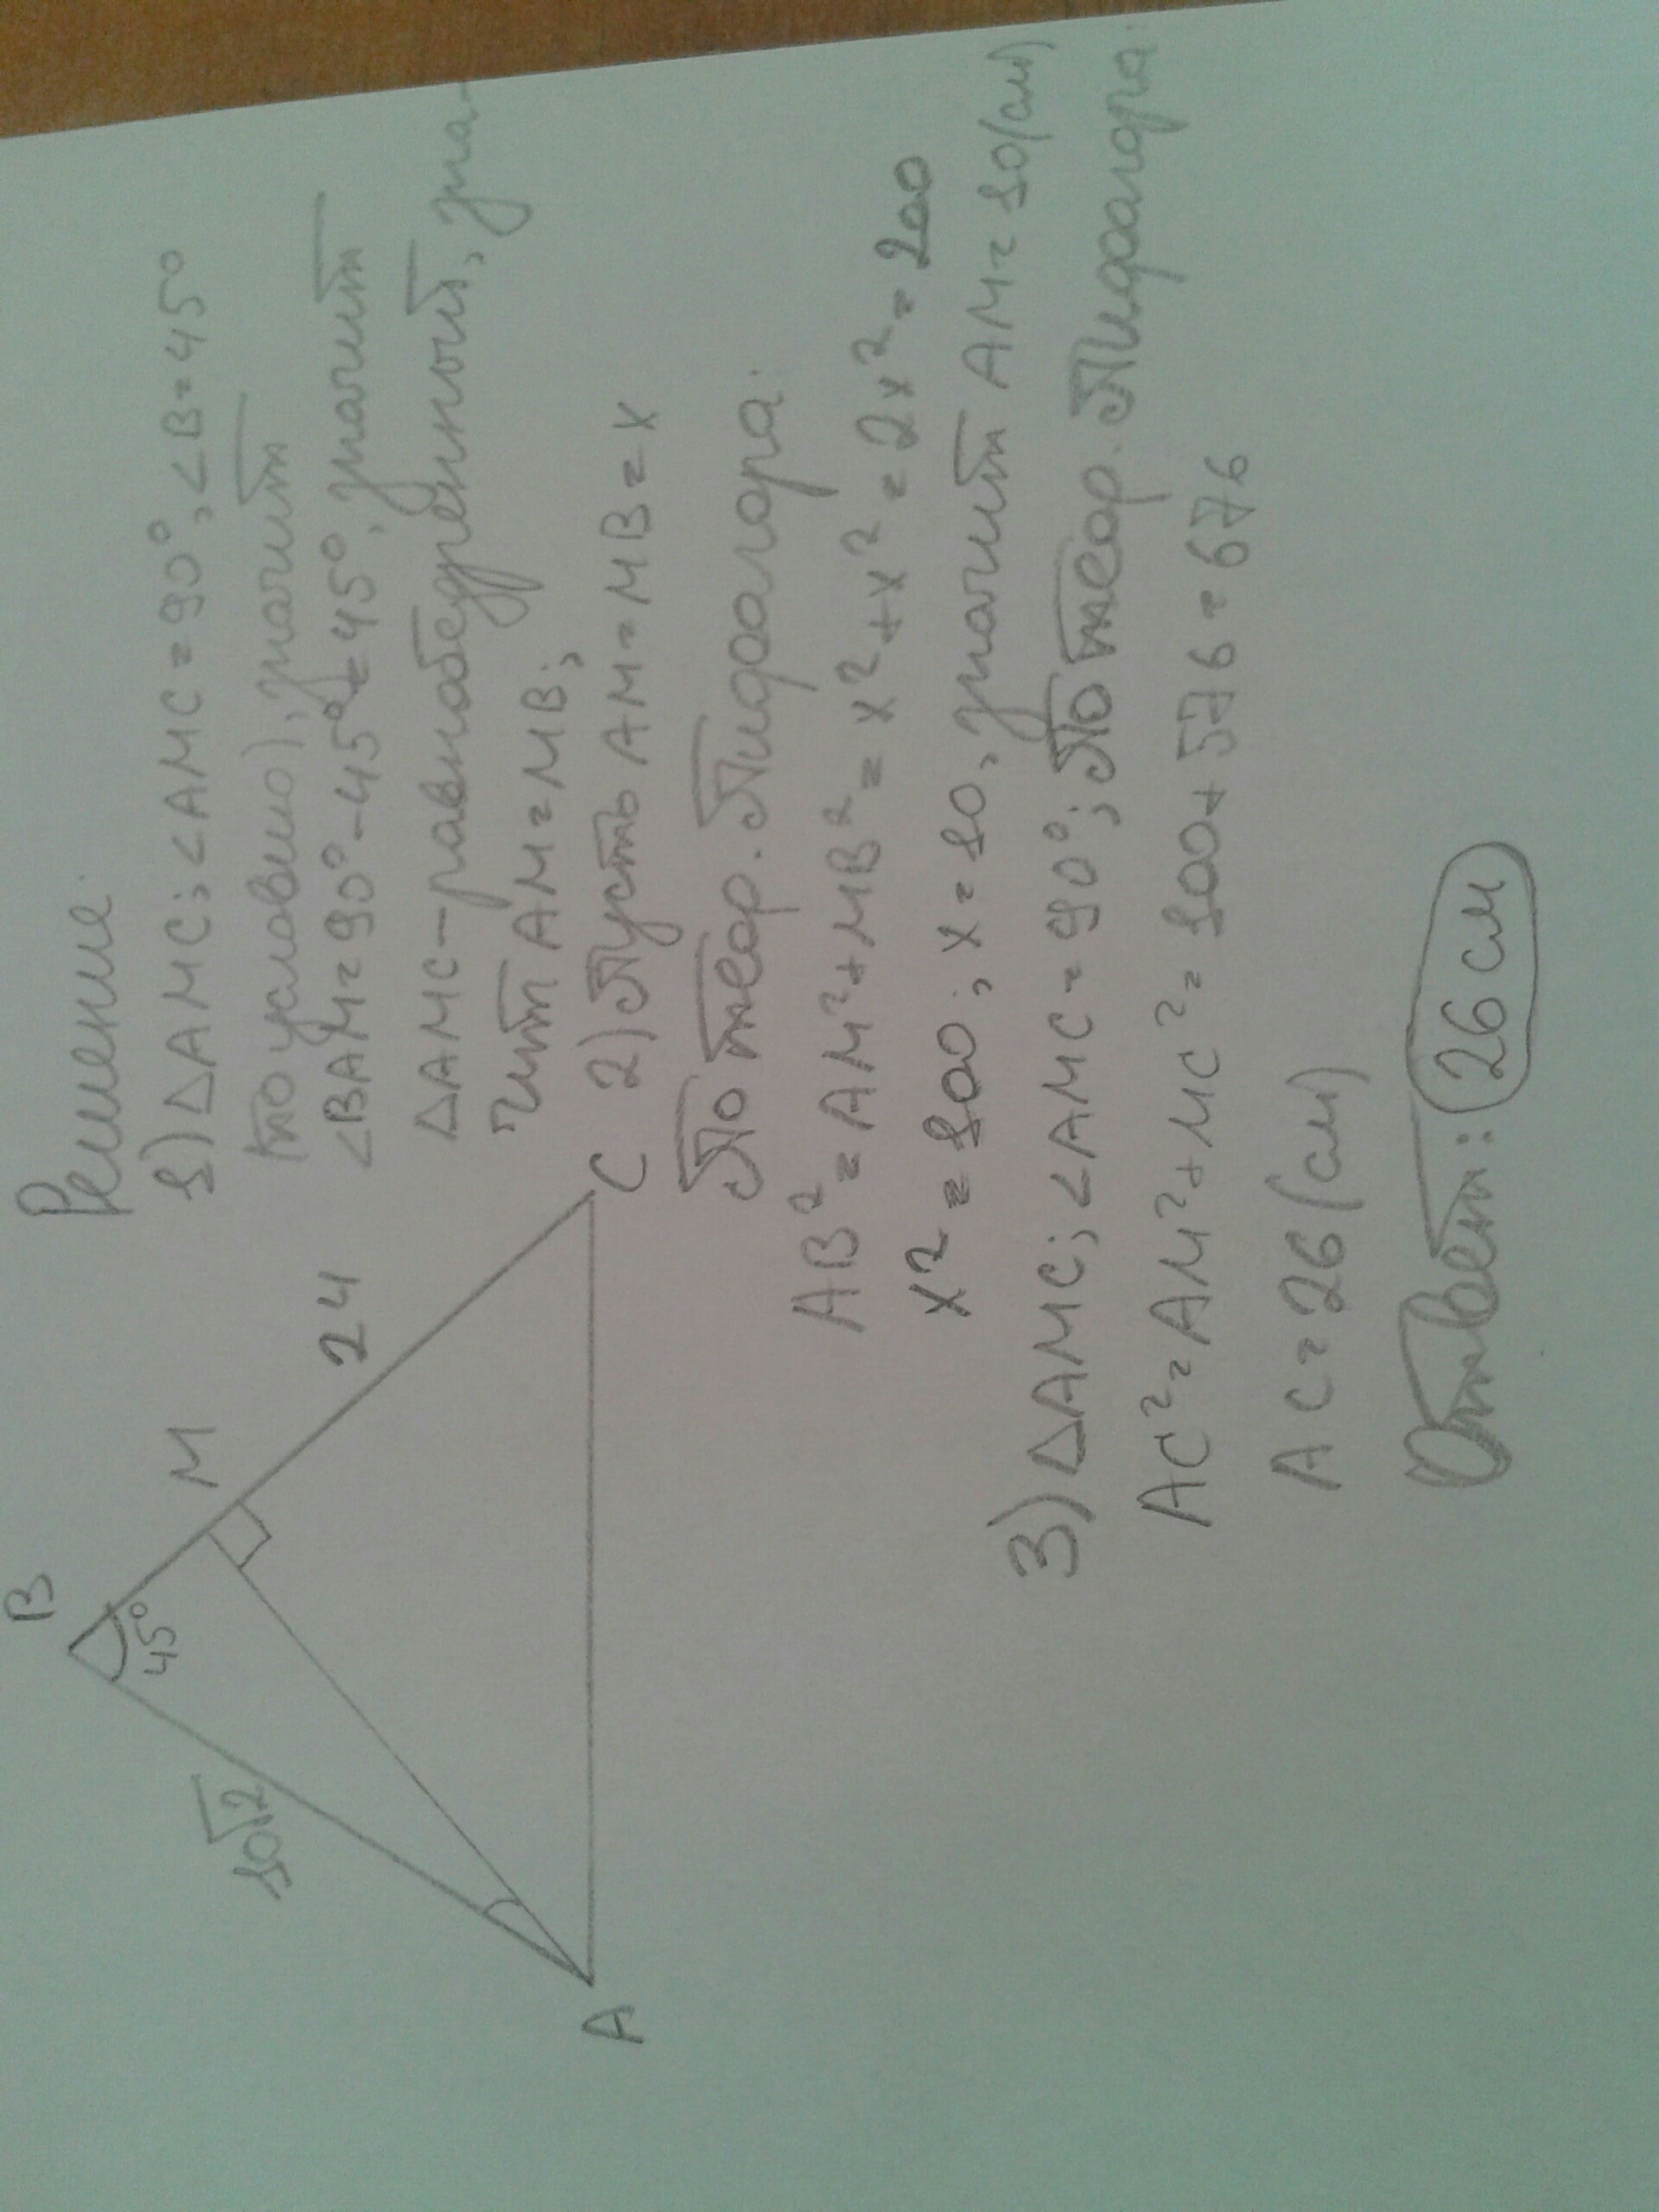 Решение:
1) ΔAMC; <AMC = 90°, <B = 45°
(по условию), значит
<BAM = 90° - 45° = 45°, значит
ΔAMC - равнобедренный, зна-
чит AM = MB;
2) Пусть AM = MB = x
По теор. Пифагора:
AB² = AM² + MB² = x² + x² = 2x² = 200
x² = 100; x = 10, значит AM = 10(см)
3) ΔAMC; <AMC = 90°; По теор. Пифагора:
AC² = AM² + MC² = 100 + 576 = 676
AC = 26 (см)
Ответ: 26 см
B
45°
M
24
10√2
A
C